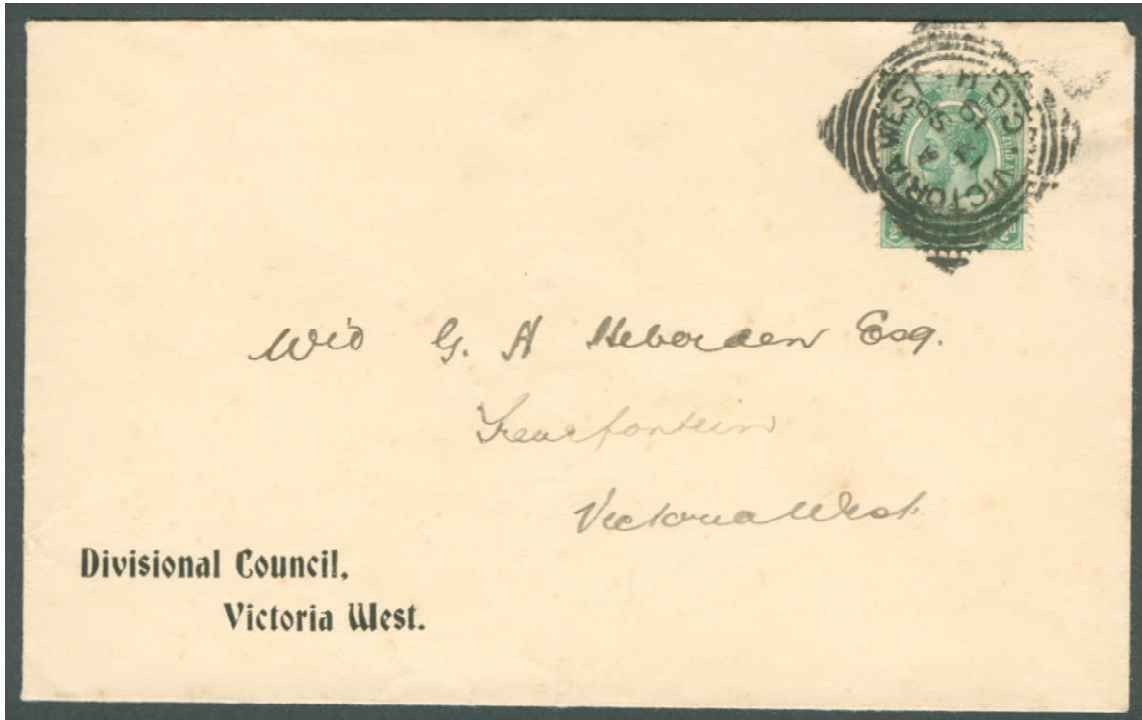 VICTORIA WEST · C.G.H ·
Wid G. H Heberden Esq.
Victoria West
Divisional Council,
Victoria West.